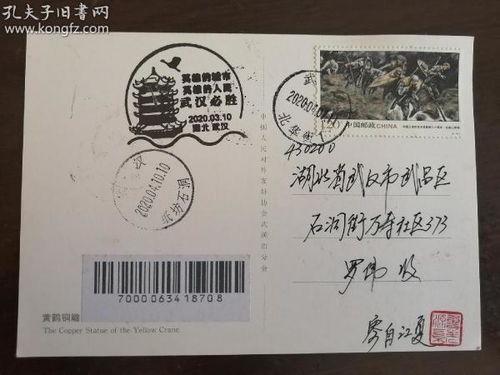 孔夫子旧书网
www.kongfz.com
英雄的城市
英雄的人民
武汉必胜
2020.03.10
湖北 武汉
中国邮政 CHINA
2020.04.10.10
430200
湖北省武汉市武昌区
石洞街万寿社区373
收
7000063418708
黄鹤铜雕
The Copper Statue of the Yellow Crane
寄自江夏